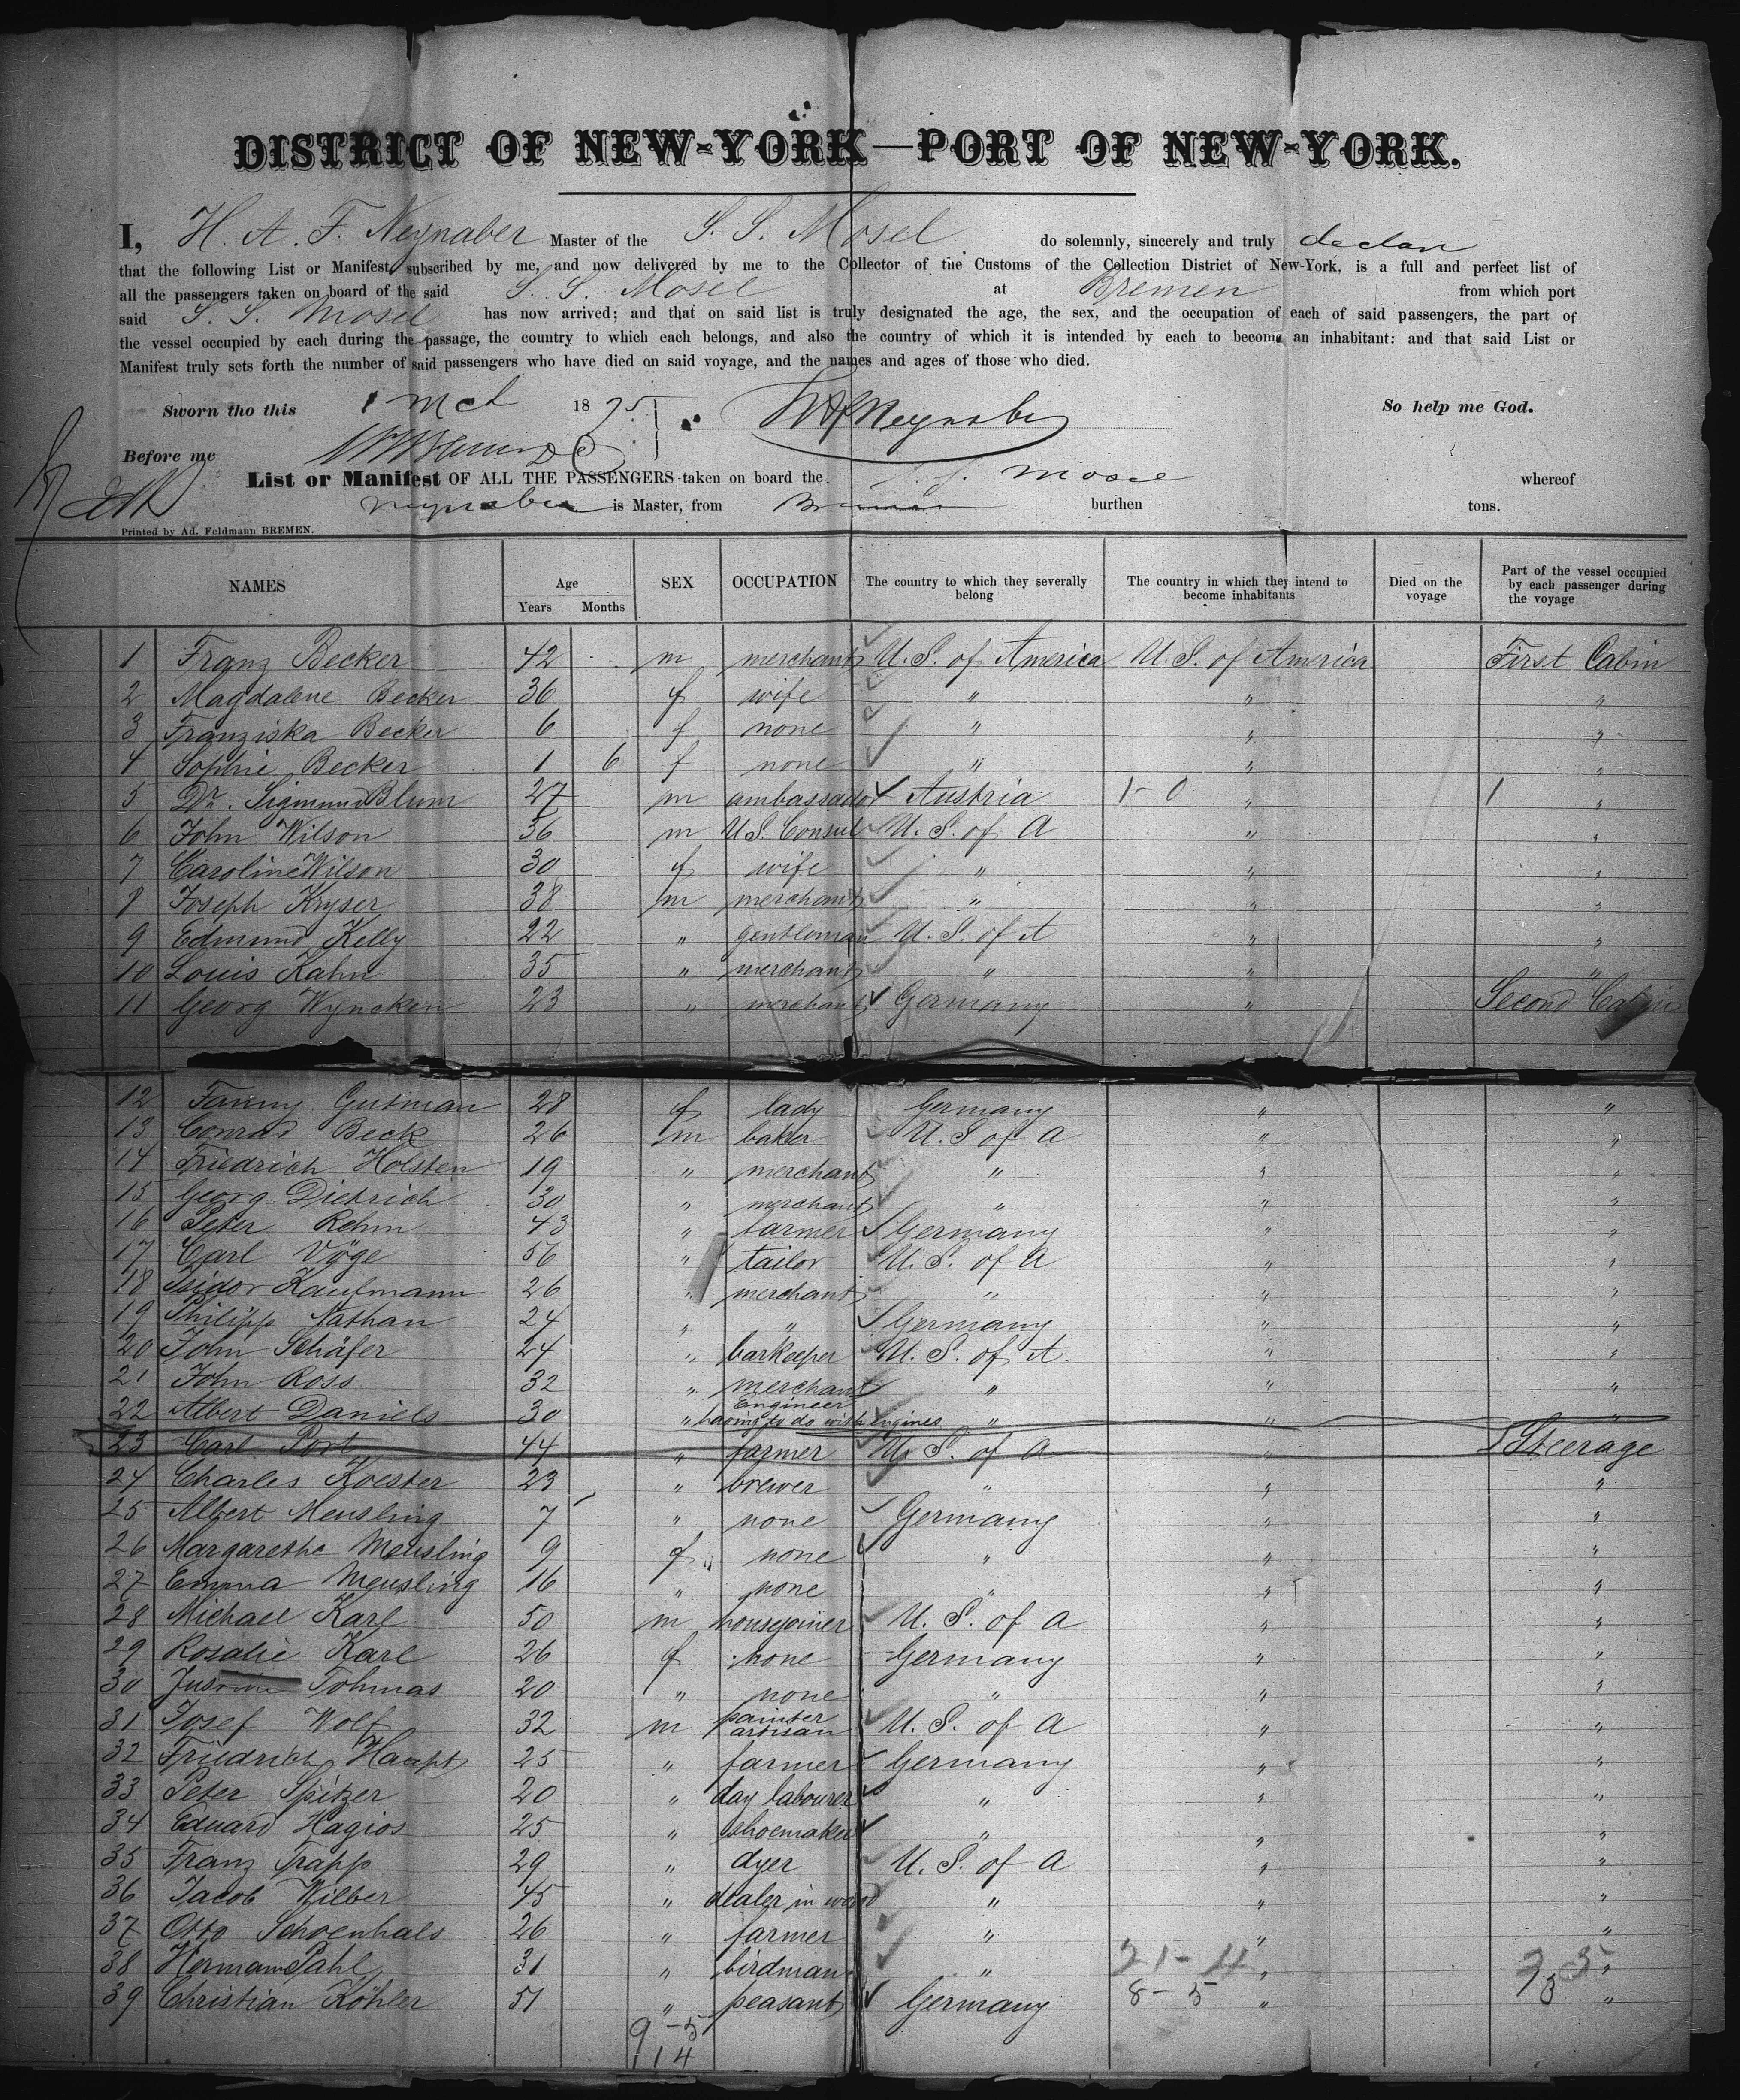 DISTRICT OF NEW-YORK—PORT OF NEW-YORK.
I, H. A. F. Neynaber Master of the S. S. Mosel do solemnly, sincerely and truly declare
that the following List or Manifest, subscribed by me, and now delivered by me to the Collector of the Customs of the Collection District of New-York, is a full and perfect list of
all the passengers taken on board of the said S. S. Mosel at Bremen from which port
said S. S. Mosel has now arrived; and that on said list is truly designated the age, the sex, and the occupation of each of said passengers, the part of
the vessel occupied by each during the passage, the country to which each belongs, and also the country of which it is intended by each to become an inhabitant: and that said List or
Manifest truly sets forth the number of said passengers who have died on said voyage, and the names and ages of those who died.
Sworn tho this 1 Mch 1875 HAFNeynaber So help me God.
Before me
List or Manifest OF ALL THE PASSENGERS taken on board the S. S. Mosel whereof
Neynaber is Master, from Bremen burthen tons.
Printed by Ad. Feldmann BREMEN.
NAMES Age Years Months SEX OCCUPATION The country to which they severally belong The country in which they intend to become inhabitants Died on the voyage Part of the vessel occupied by each passenger during the voyage
1 Franz Becker 42 m merchant U. S. of America U. S. of America First Cabin
2 Magdalene Becker 36 f wife " " "
3 Franziska Becker 6 f none " " "
4 Sophie Becker 1 6 f none " " "
5 Dr. Sigmund Blum 27 m ambassador Austria 1-0 " 1 "
6 John Wilson 36 m U.S. Consul U. S. of A " "
7 Caroline Wilson 30 f wife " " "
8 Joseph Kryser 38 m merchant " " "
9 Edmund Kelly 22 " gentleman U. S. of A " "
10 Louis Kahn 35 " merchant " " "
11 Georg Wyncken 23 " merchant Germany " Second Cabin
12 Fanny Gutman 28 f lady Germany " "
13 Conrad Beck 26 m baker U. S of A " "
14 Friedrich Holsten 19 " merchant " " "
15 Georg Dietrich 30 " merchant " " "
16 Peter Rehm 43 " farmer Germany " "
17 Carl Vöge 56 " tailor U. S. of A " "
18 Isidor Kaufmann 26 " merchant " " "
19 Philipp Nathan 24 " " Germany " "
20 John Schäfer 24 " barkeeper U. S. of A. " "
21 John Ross 32 " merchant " " "
22 Albert Daniels 30 " Engineer having to do with engines " " "
23 Carl Port 44 " farmer U. S. of A " Steerage
24 Charles Koester 23 " brewer " " "
25 Albert Meusling 7 " none Germany " "
26 Margarethe Meusling 9 f none " " "
27 Emma Meusling 16 " none " " "
28 Michael Karl 50 m housejoiner U. S. of A " "
29 Rosalie Karl 26 f none Germany " "
30 Tohmas 20 " none " " "
31 Josef Wolf 32 m painter artisan U. S. of A " "
32 Friedrich Haupt 25 " farmer Germany " "
33 Peter Spitzer 20 " day labourer " " "
34 Eduard Hagios 25 " shoemaker " " "
35 Franz Trapp 29 " dyer U. S. of A " "
36 Jacob Wilber 45 " dealer in wood " " "
37 Otto Schoenhals 26 " farmer " " "
38 Herman Pahl 31 " birdman " 21-4 " "
39 Christian Köhler 51 " peasant Germany 8-5 " "
9-5
114